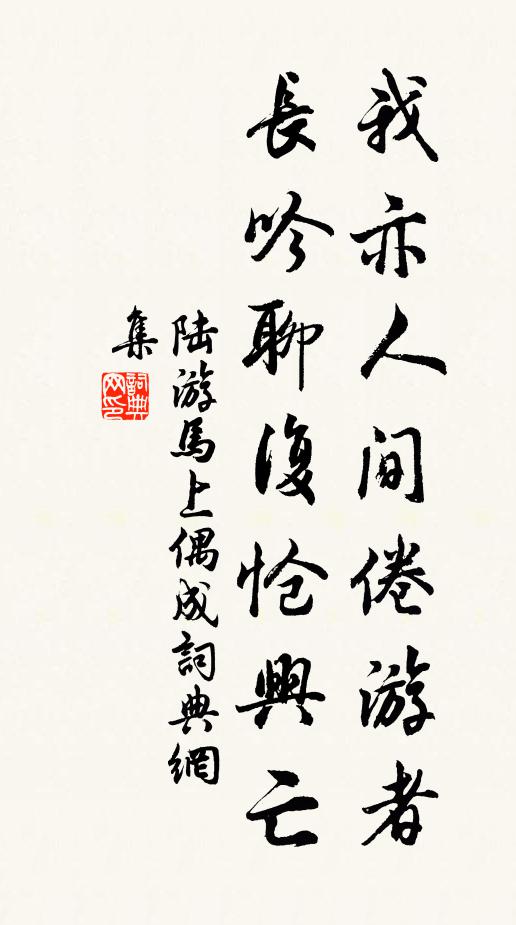 我亦人間倦游者
長吟聊復愴興亡
陸游馬上偶成詞典網
集
詞典網印